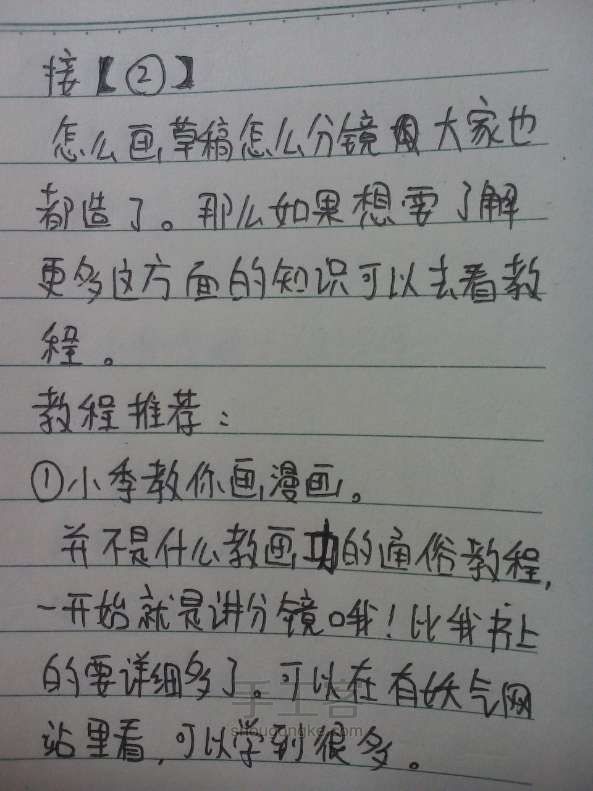 接【②】
怎么画草稿怎么分镜 大家也
都造了。那么如果想要了解
更多这方面的知识可以去看教
程。
教程推荐:
①小季教你画漫画。
并不是什么教画功的通俗教程,
一开始就是讲分镜哦!比我书上
的要详细多了。可以在有妖气网
站里看,可以学到很多。
手工客
shougongke.com